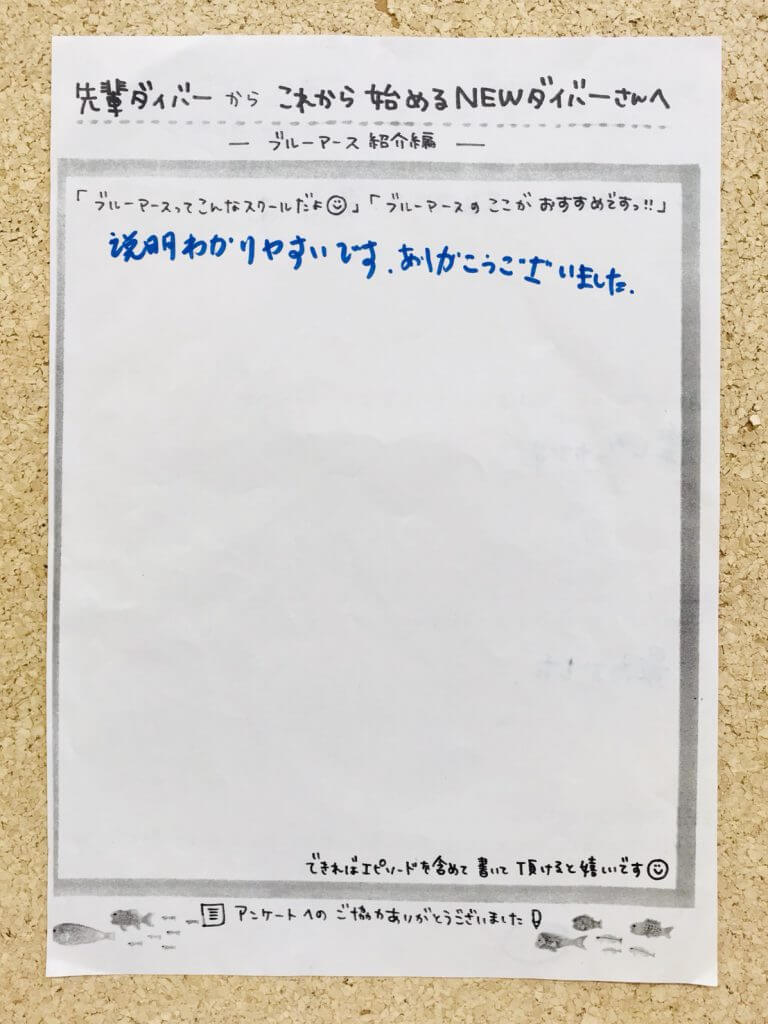 先輩ダイバーから これから始めるNEWダイバーさんへ
― ブルーアース紹介編 ―
「ブルーアースってこんなスクールだよ☺」「ブルーアースのここがおすすめですっ!!」
説明わかりやすいです.ありがとうございました.
できればエピソードを含めて書いて頂けると嬉しいです☺
アンケートへのご協力ありがとうございました